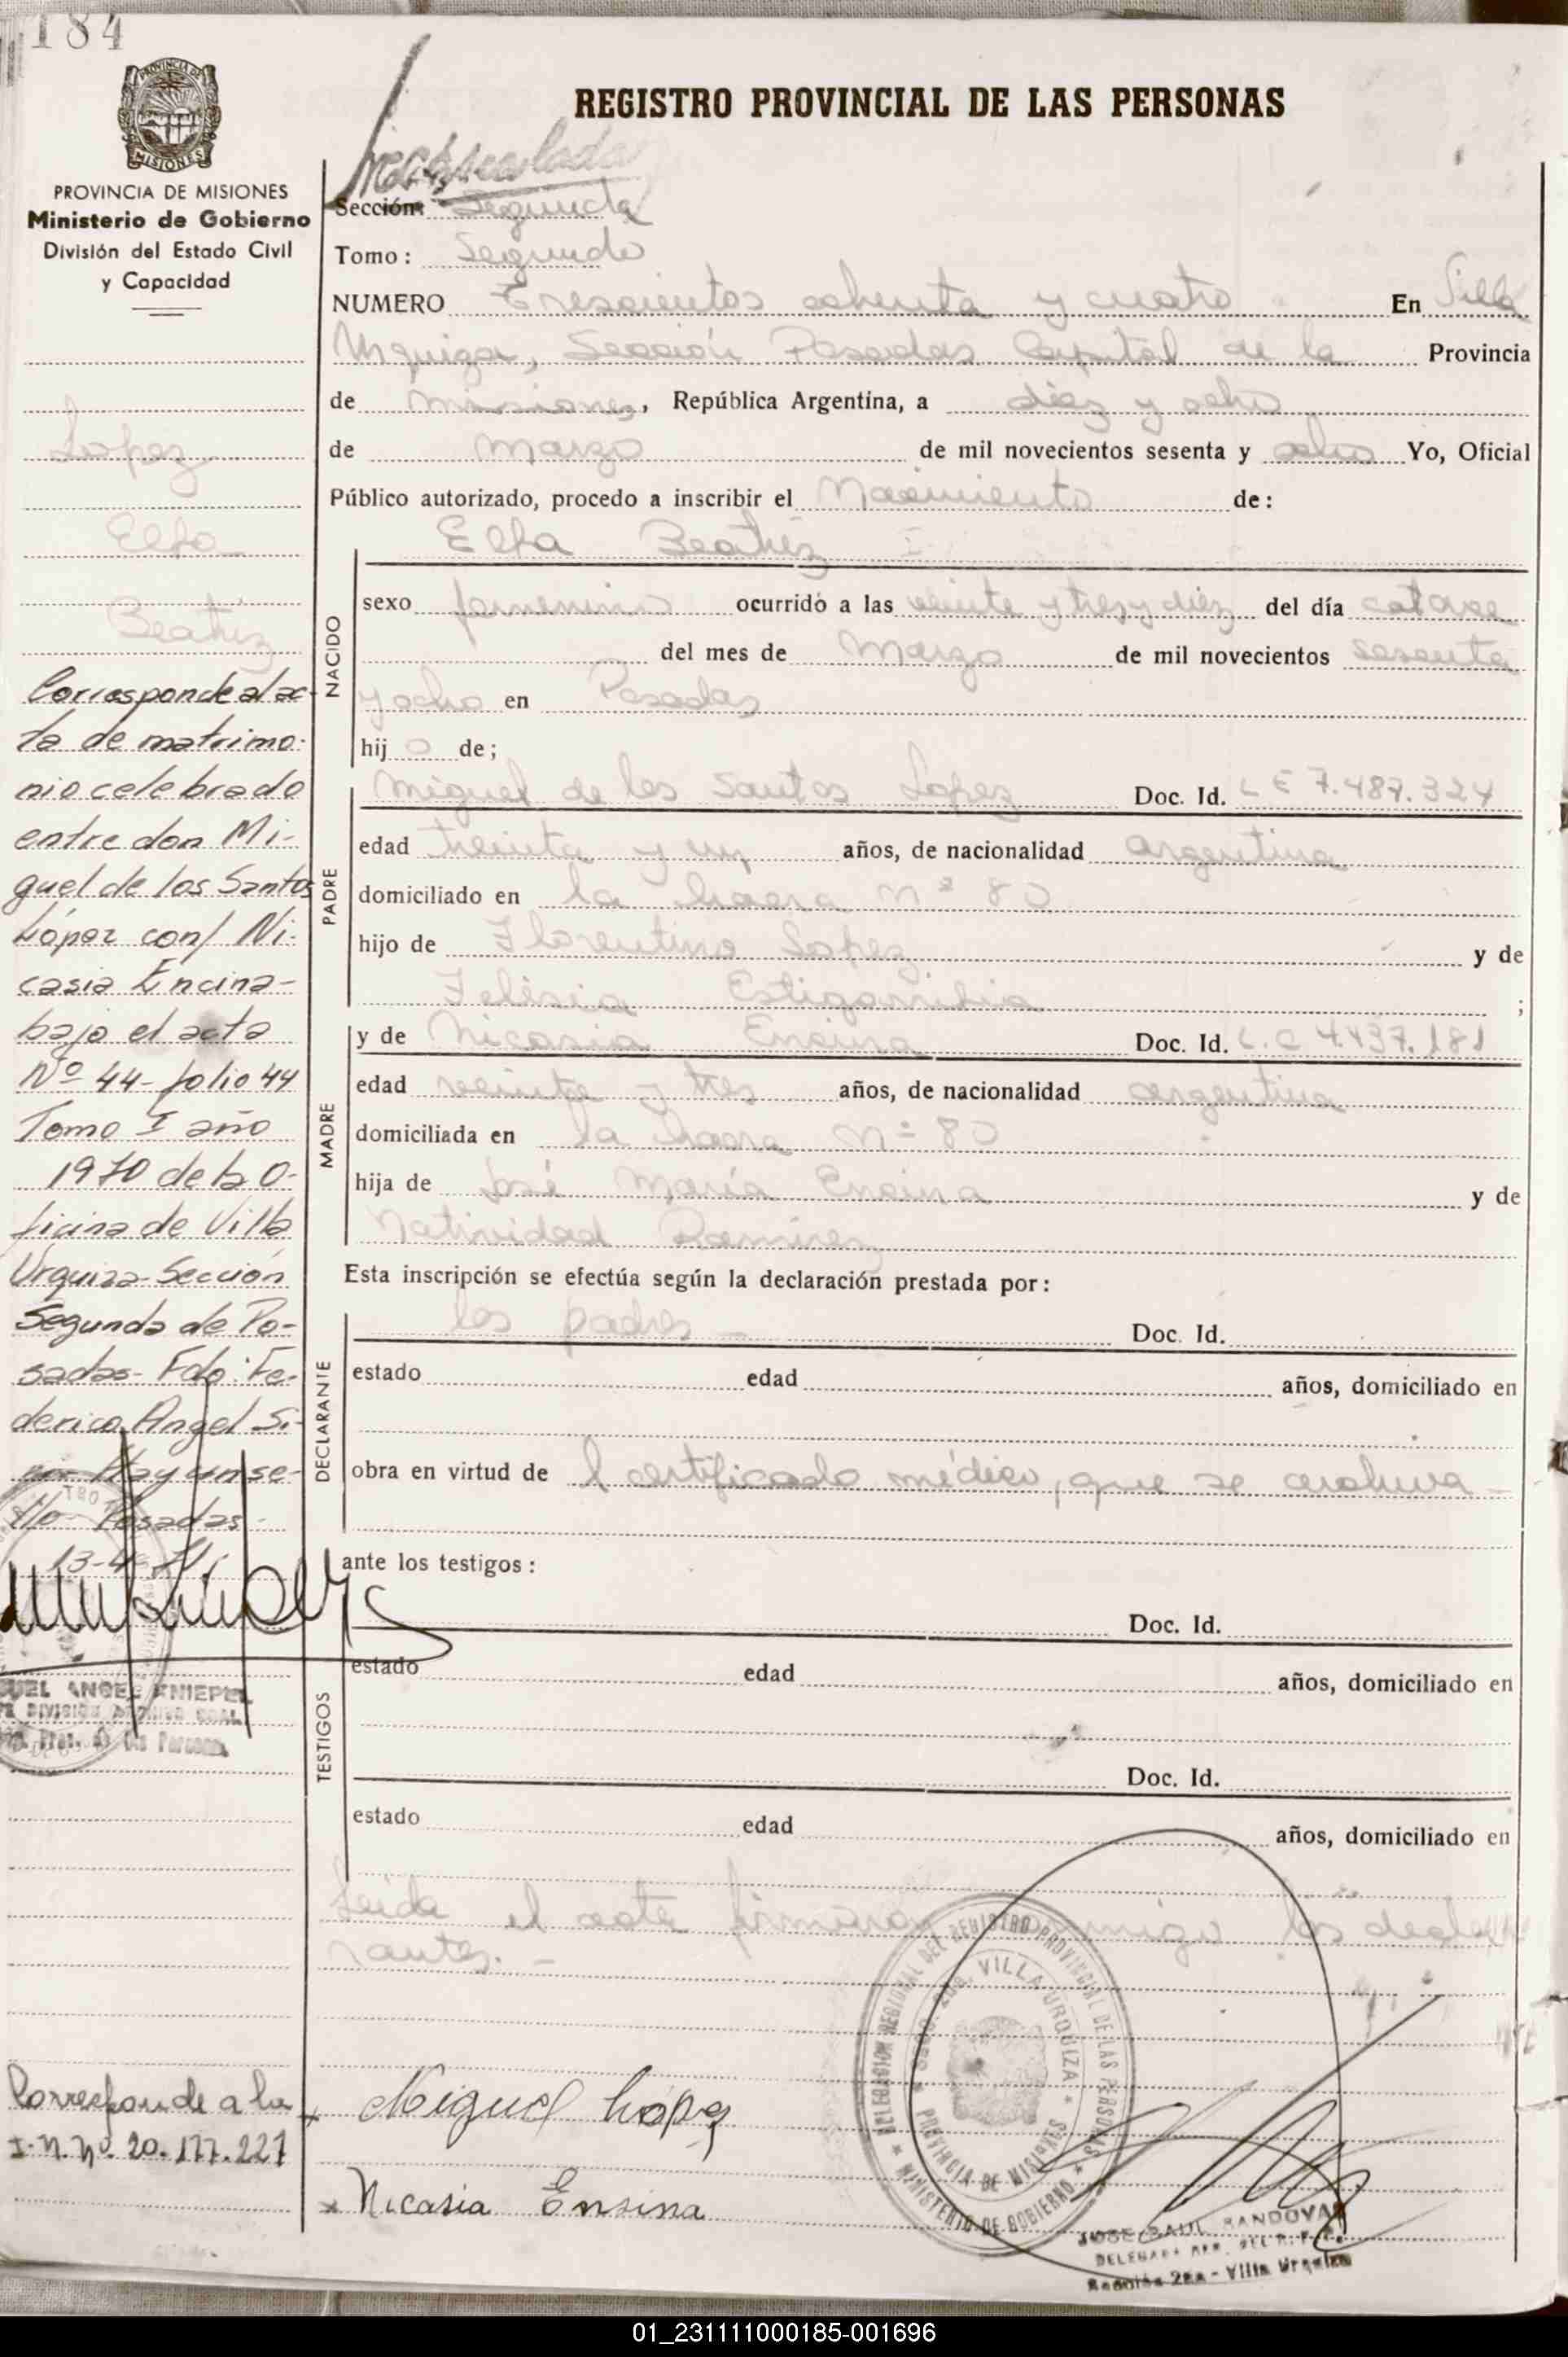 184
PROVINCIA DE MISIONES
Ministerio de Gobierno
División del Estado Civil
y Capacidad
Lopez
Elfa
Beatriz
Corresponde al ac-
ta de matrimo-
nio celebrado
entre don Mi-
guel de los Santos
López con/ Ni-
casia Encina-
bajo el acta
Nº 44- folio 44
Tomo I año
1970 de la O-
ficina de Villa
Urquiza- Sección
Segunda de Po-
sadas- Fdo: Fe-
derico Angel Si-
Hay un se-
llo- Posadas-
ANGEL KNIEPEL
Corresponde a la
I.N.Nº. 20.177.227
REGISTRO PROVINCIAL DE LAS PERSONAS
Sección: Segunda
Tomo: Segundo
NUMERO Trescientos ochenta y cuatro En Villa
Urquiza, Sección Posadas Capital de la Provincia
de Misiones, República Argentina, a diez y ocho
de Marzo de mil novecientos sesenta y ocho Yo, Oficial
Público autorizado, procedo a inscribir el Nacimiento de:
Elfa Beatriz
NACIDO
sexo femenino ocurrido a las veinte y tres y diez del día catorce
del mes de Marzo de mil novecientos sesenta
y ocho en Posadas
hij de;
PADRE
Miguel de los Santos Lopez Doc. Id. L E 7.487.324
edad treinta y un años, de nacionalidad argentina
domiciliado en la hacra Nº 80
hijo de Florentino Lopez y de
Felisia Estigarribia ;
MADRE
y de Nicasia Encina Doc. Id. L.C 4.437.181
edad veinte y tres años, de nacionalidad argentina
domiciliada en la hacra Nº 80
hija de José María Encina y de
Natividad Ramirez
Esta inscripción se efectúa según la declaración prestada por:
DECLARANTE
los padres - Doc. Id.
estado edad años, domiciliado en
obra en virtud de l certificado médico, que se archiva-
ante los testigos:
TESTIGOS
Doc. Id.
estado edad años, domiciliado en
Doc. Id.
estado edad años, domiciliado en
Leida el acta firmaron migo los decla
rantes.-
DELEGACION REGIONAL DEL REGISTRO PROVINCIAL DE LAS PERSONAS
MINISTERIO DE GOBIERNO
VILLA URQUIZA
PROVINCIA DE MISIONES
Miguel López
Nicasia Ensina
JOSE RAUL SANDOVAL
Sección 2da - Villa Urquiza
01_231111000185-001696